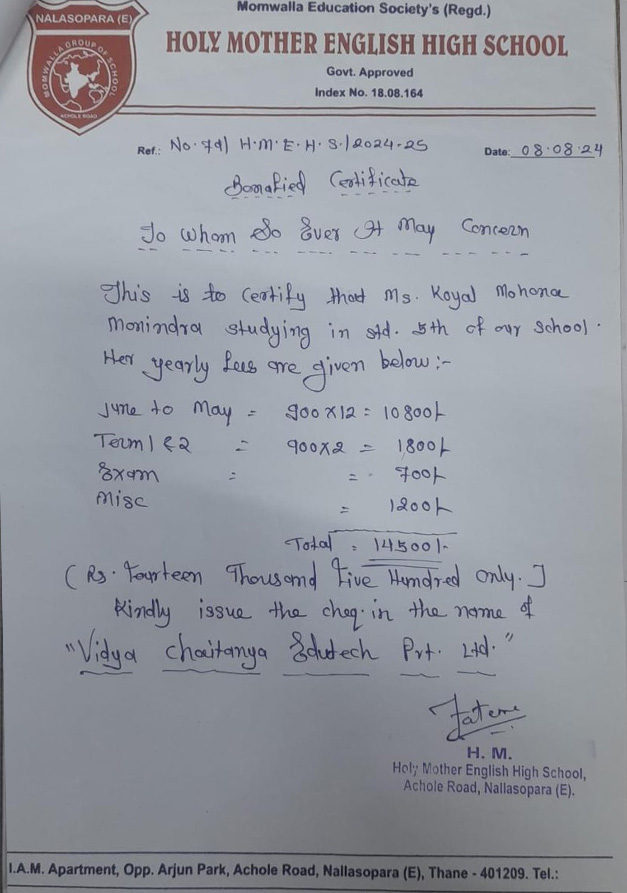 Momwalla Education Society's (Regd.)
NALASOPARA (E)
MOMWALLA GROUP OF SCHOOL
ACHOLE ROAD
HOLY MOTHER ENGLISH HIGH SCHOOL
Govt. Approved
Index No. 18.08.164
Ref.: No. 79/ H.M.E.H.S./2024-25 Date: 08.08.24
Bonafied Certificate
To Whom So Ever It May Concern
This is to certify that Ms. Koyal Mohona
Monindra studying in std. 5th of our school.
Her yearly fees are given below :-
June to May = 900 x 12 = 10800/-
Term 1 & 2 = 900 x 2 = 1800/-
Exam = = 700/-
Misc = 1200/-
Total = 14500/-
( Rs. Fourteen Thousand Five Hundred Only. ]
Kindly issue the cheq. in the name of
"Vidya Chaitanya Edutech Pvt. Ltd."
H. M.
Holy Mother English High School,
Achole Road, Nallasopara (E).
I.A.M. Apartment, Opp. Arjun Park, Achole Road, Nallasopara (E), Thane - 401209. Tel.: